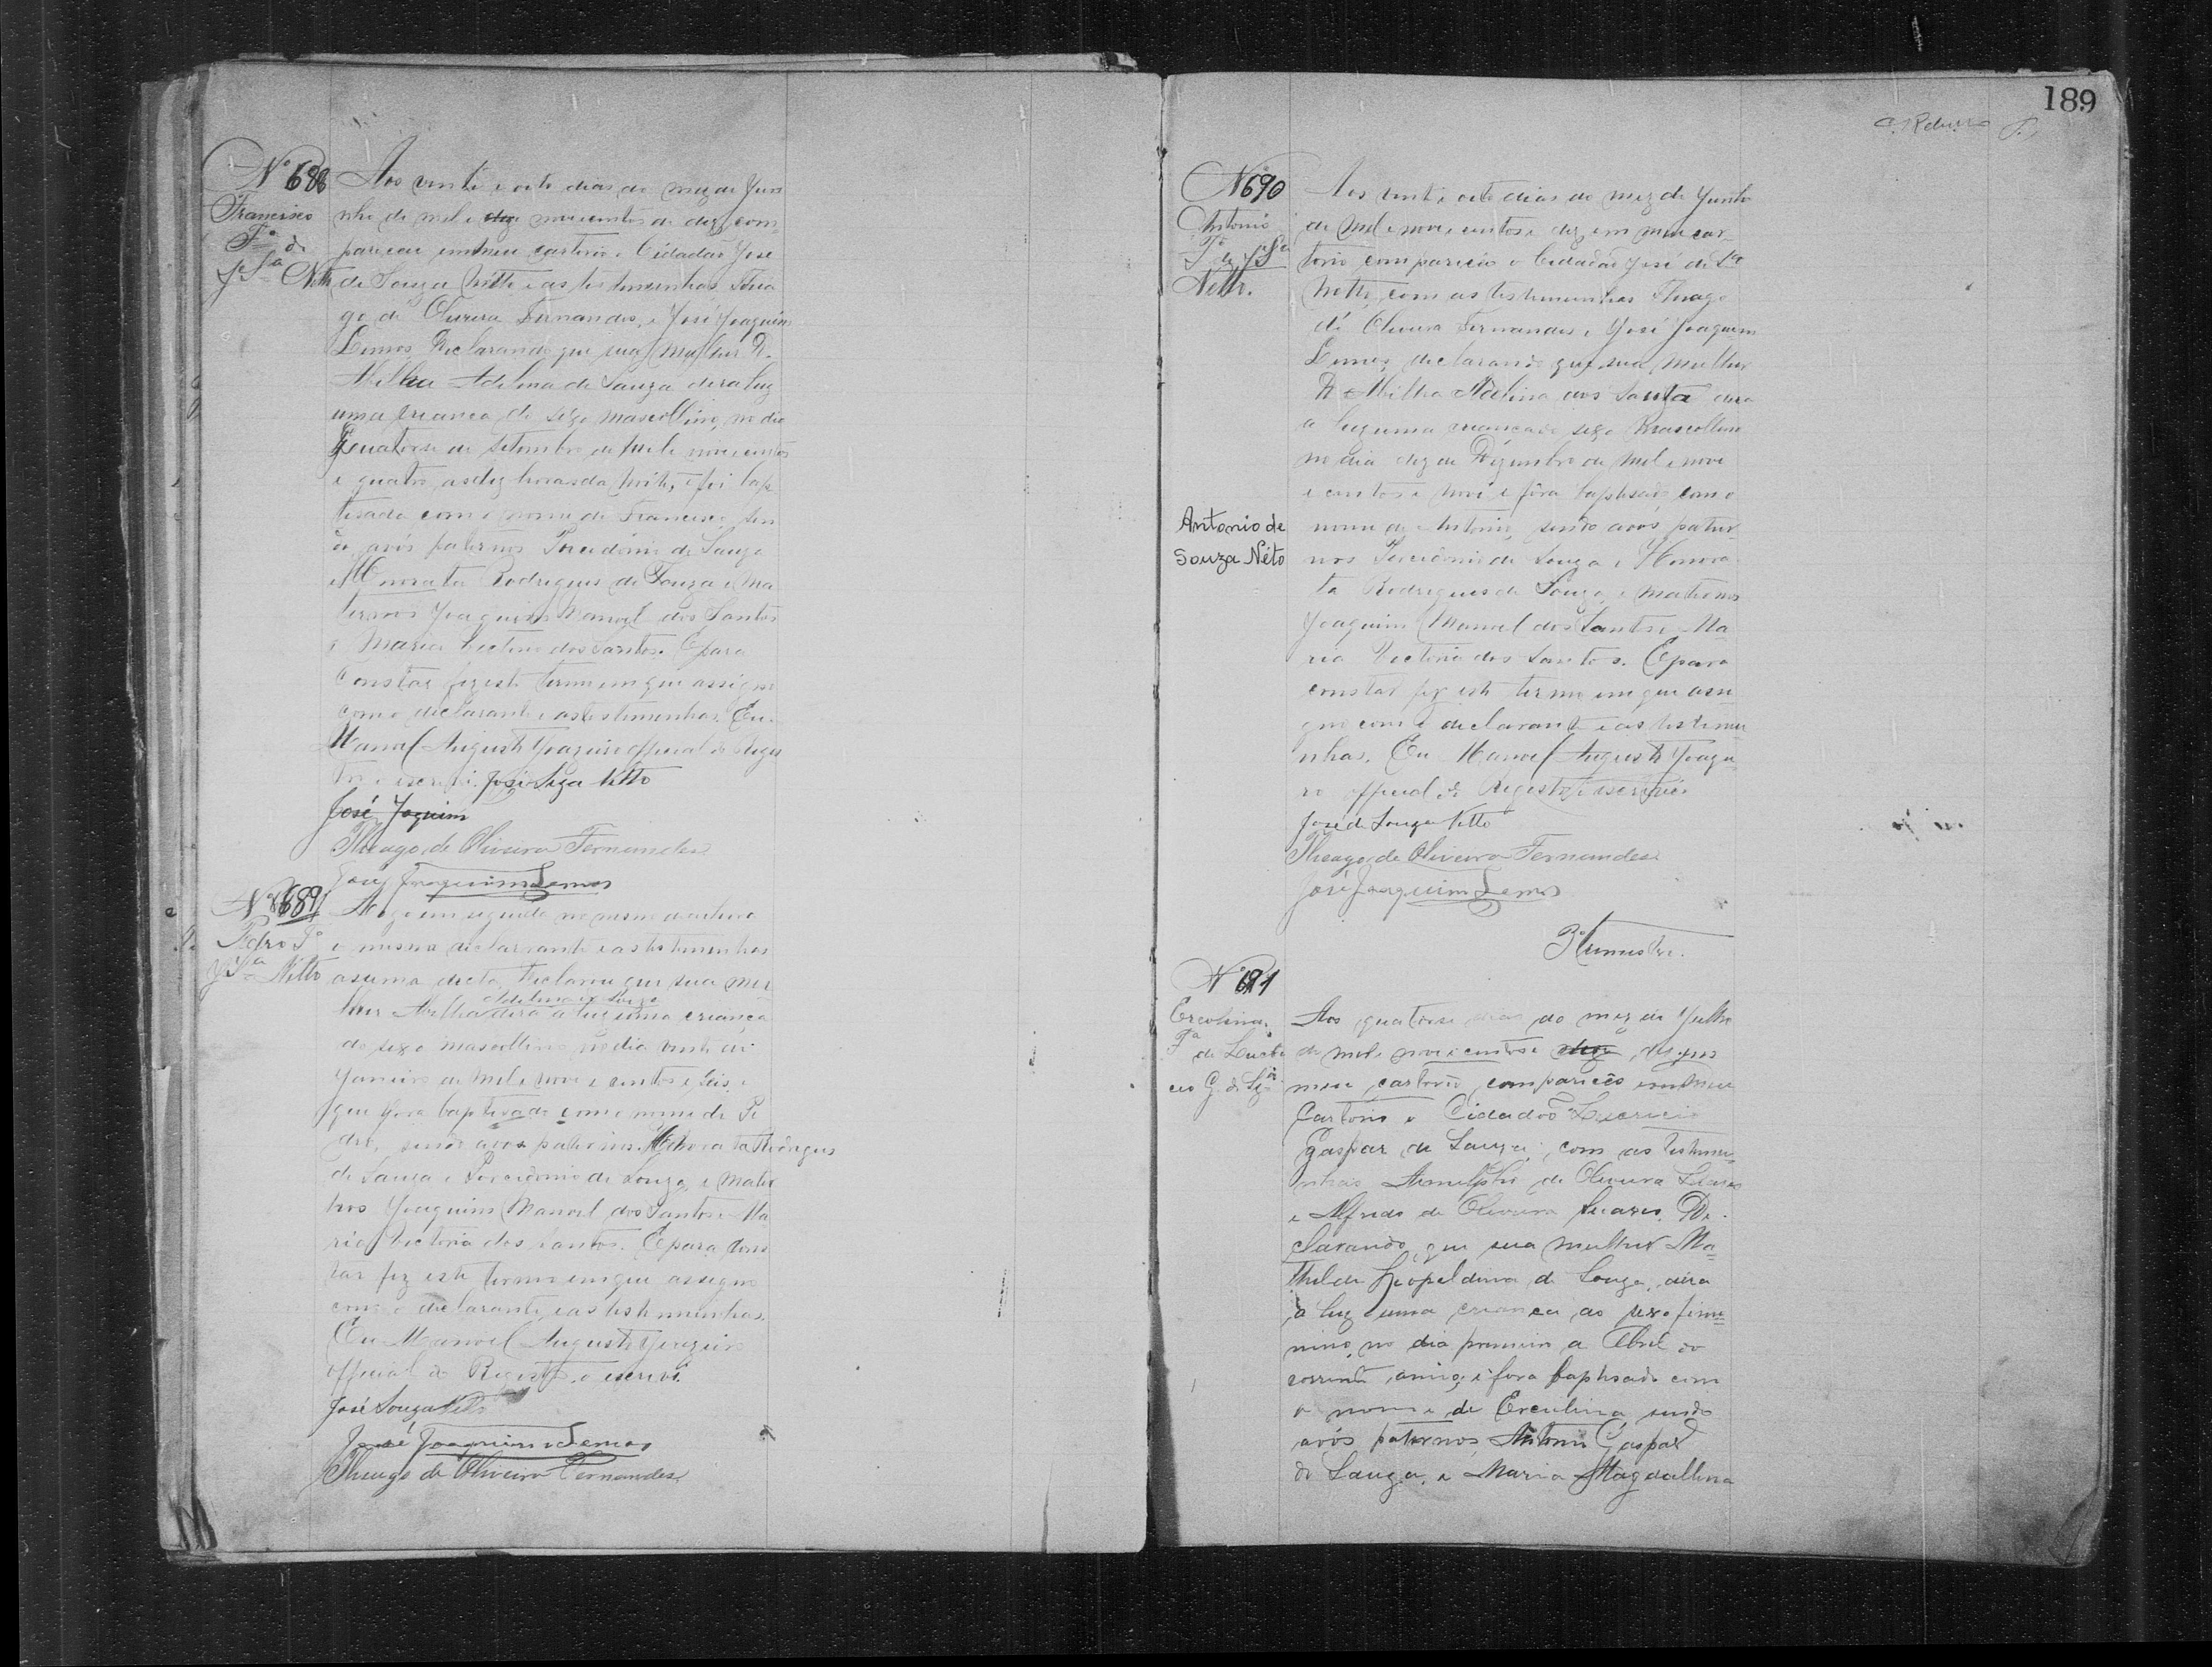 Nº 688
Francisco
Fº de
J. Sª Netto
Aos vinte e oito dias do mez de Ju
nho de mil e dez novecentos de dez com
pareceu em meu cartorio o Cidadão José
de Souza Netto e as testemunhas Thia
go de Oliveira Fernandes, e José Joaquim
Lemos Declarando que sua mulher D.
Adelina de Souza dera luz
uma creança do sexo mascollino, no dia
quatorse de Setembro de mil e novecentos
e quatro, as dez horas da noite, e foi bap
tisada com o nome de Francisco, sen
do avós paternos Porcidonio de Souza
e Honorata Rodrigues de Souza e ma
ternos Joaquim Manoel dos Santos
e Maria Victoria dos Santos. E para
constar fiz este termo em que assigno
com o declarante e as testemunhas. Eu
Manoel Augusto official do Regis
tro o escrevi. José Soza Netto
José Joquim
Theago de Oliveira Fernandes
José Joaquim Lemos
Nº 689
Pedro Fº
J. Sª Netto
Logo em seguida no mesmo cartorio
o mesmo declarante e as testemunhas
asima declarou que sua mu
Adelina de Souza
lher dera a luz uma creança
do sexo mascollino no dia vinte de
Janeiro de mil e nove e centos e seis, e
que fora baptisado com o nome de Pe
dro, sendo avos paternos Honorata Rodrigues
de Souza e Porcidonio de Souza, e mater
nos Joaquim Manoel dos Santos e Ma
ria Victoria dos Santos. E para cons
tar fiz este termo em que assigno
com o declarante e as testemunhas.
Eu Manoel Augusto
official do Registro o escrevi.
José Souza Netto
José Joaquim Lemos
Theago de Oliveira Fernandes
189
Nº 690
Antonio
Fº de J. Sª
Netto.
Antonio de
Souza Néto
Aos vinte e oito dias do mez de Junho
de mil e nove e centos e dez em meu car
torio compareceo o Cidadão José de Sza
Netto, com as testemunhas Thiago
de Oliveira Fernandes e José Joaquim
Lemos, declarando que sua mulher
D. Adelina dos Santa dera
a luz uma creança do sexo Mascollino
no dia dez de Dezembro de mil e nove
e centos e nove e fôra baptisado com o
nome de Antonio, sendo avós pater
nos Porcidonio de Souza e Honora
ta Rodrigues de Souza, e maternos
Joaquim Manoel dos Santos e Ma
ria Victoria dos Santos. E para
constar fiz este termo em que assi
gno com o declarante e as testemu
nhas. Eu Manoel Augusto
official do Registro o escrevi
José de Souza Netto
Theago de Oliveira Fernandes
José Joaquim Lemos
3º trimestre.
Nº 691
Ercolina
Fª
de Lucre
cio G. de Sza
Aos quatorse dias do mez de Julho
de mil e nove e centos e dez, dez, em
meu cartorio compareceo em meu
Cartorio o Cidadão Lucrecio
Gaspar de Souza, com as testemu
nhas de Oliveira Soares
e Alfredo de Oliveira Soares. De
clarando, que sua mulher Ma
thilde Leopoldina de Souza, dera
a luz uma creança do sexo fimi
nino, no dia primeiro de Abril do
corrente anno, e fora baptisado com
o nome de Erculina sendo
avós paternos Antonio Gaspar
de Souza, e Maria Magdallena